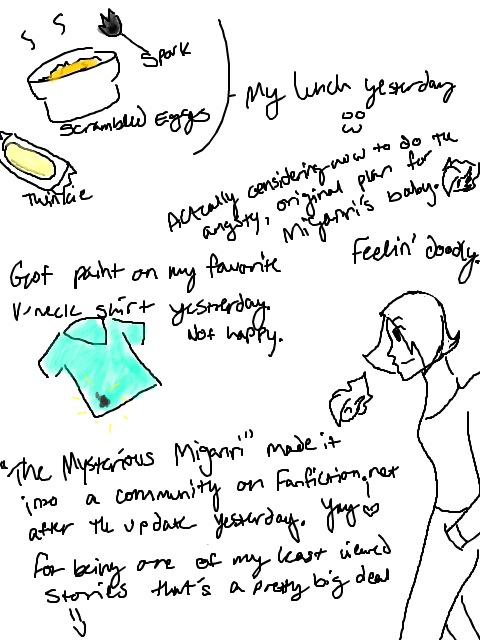 Spork
Scrambled Eggs
My lunch yesterday
Twinkie
Actually considering now to do the
angsty, original plan for
Miganri's baby.
Feelin' doodly.
Got paint on my favorite
V-neck shirt yesterday.
Not happy.
"The Mysterious Miganri" made it
into a community on Fanfiction.net
after the update yesterday. Yay!
For being one of my least viewed
stories that's a pretty big deal